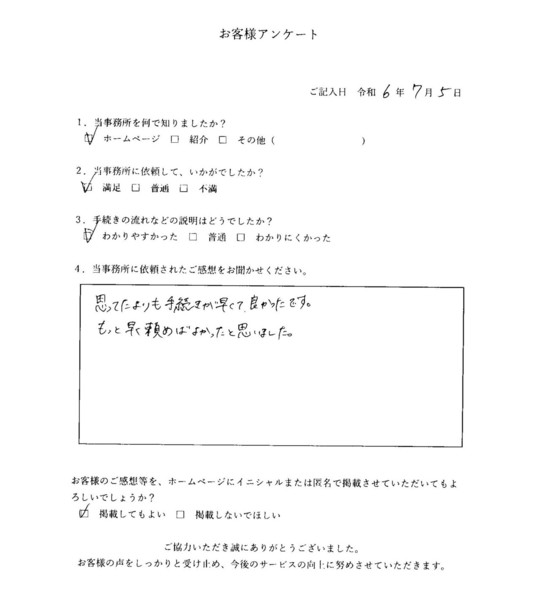 お客様アンケート
ご記入日 令和 6 年 7 月 5 日
1．当事務所を何で知りましたか？
☑ ホームページ □ 紹介 □ その他（ ）
2．当事務所に依頼して、いかがでしたか？
☑ 満足 □ 普通 □ 不満
3．手続きの流れなどの説明はどうでしたか？
☑ わかりやすかった □ 普通 □ わかりにくかった
4．当事務所に依頼されたご感想をお聞かせください。
思ってたよりも手続きが早くて良かったです。
もっと早く頼めばよかったと思いました。
お客様のご感想等を、ホームページにイニシャルまたは匿名で掲載させていただいてもよ
ろしいでしょうか？
☑ 掲載してもよい □ 掲載しないでほしい
ご協力いただき誠にありがとうございました。
お客様の声をしっかりと受け止め、今後のサービスの向上に努めさせていただきます。